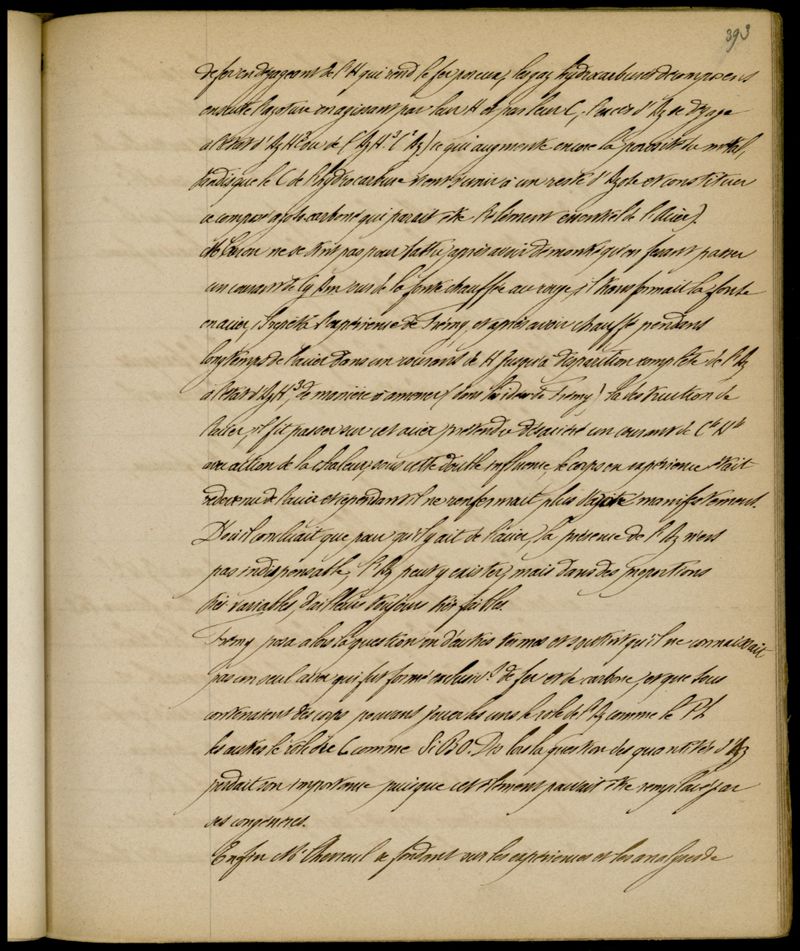 393
de fer en dégageant de l'H qui rend le fer poreux, les gaz hydrocarburés décomposent
ensuite l'azoture en agissant par leur H et par leur C, l'excès d'Az se dégage
à l'état d'AzH³ ou de (AzH³ C² Az) ce qui augmente encore la porosité du métal,
tandis que le C de l'hydrocarbure vient s'unir à un reste d'Azote et constituer
ce composé azoto-carboné qui parait être l'élément essentiel de l'acier).
Mr Caron ne se tint pas pour battu, après avoir démontré qu'en faisant passer
un courant de sur de la fonte chauffée au rouge, il transformait la fonte
en acier, il répéta l'expérience de Frémy et après avoir chauffé pendant
longtemps de l'acier dans un courant de H jusqu'à disparition complète de l'Az
à l'état d'AzH³, de manière à amener (dans les idées de Frémy) la destruction de
l'acier, il fit passer sur cet acier prétendu désaciéré un courant de
avec action de la chaleur, sous cette double influence, le corps en expérience était
redevenu de l'acier et cependant il ne renfermait plus d'azote manifestement.
D'où il concluait que pour qu'il y ait de l'acier, la présence de l'Az n'est
pas indispensable, l'Az peut y exister, mais dans des proportions
très variables, d'ailleurs toujours très faibles.
Frémy posa alors la question en d'autres termes et soutint qu'il ne connaissait
pas un seul acier qui fut formé exclusivt de fer et de carbone, et que tous
contenaient des corps pouvant jouer les uns le rôle de l'Az comme le Ph
les autres le rôle de C comme Si. BO. Dès lors la question des quantités d'Az
perdait son importance puisque cet élément pouvait être remplacé par
ses congénères.
Enfin Mr Chevreul se fondant sur les expériences et les analyses de